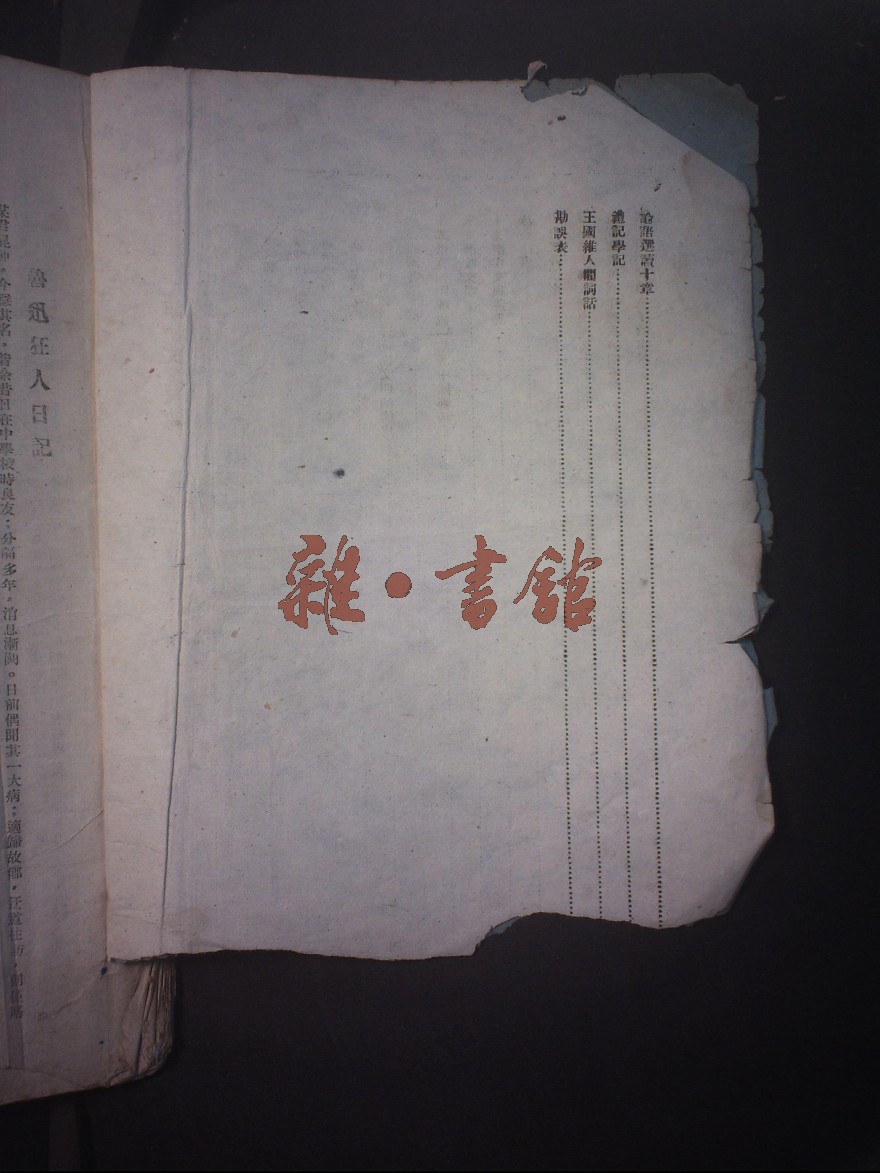 論語選讀十章
禮記學記
王國維人間詞話
勘誤表
雜•書館
魯迅狂人日記
某君昆仲,今隱其名,皆余昔日在中學校時良友;分隔多年,消息漸闕。日前偶聞其一大病;適歸故鄉,迂道往訪,則僅晤